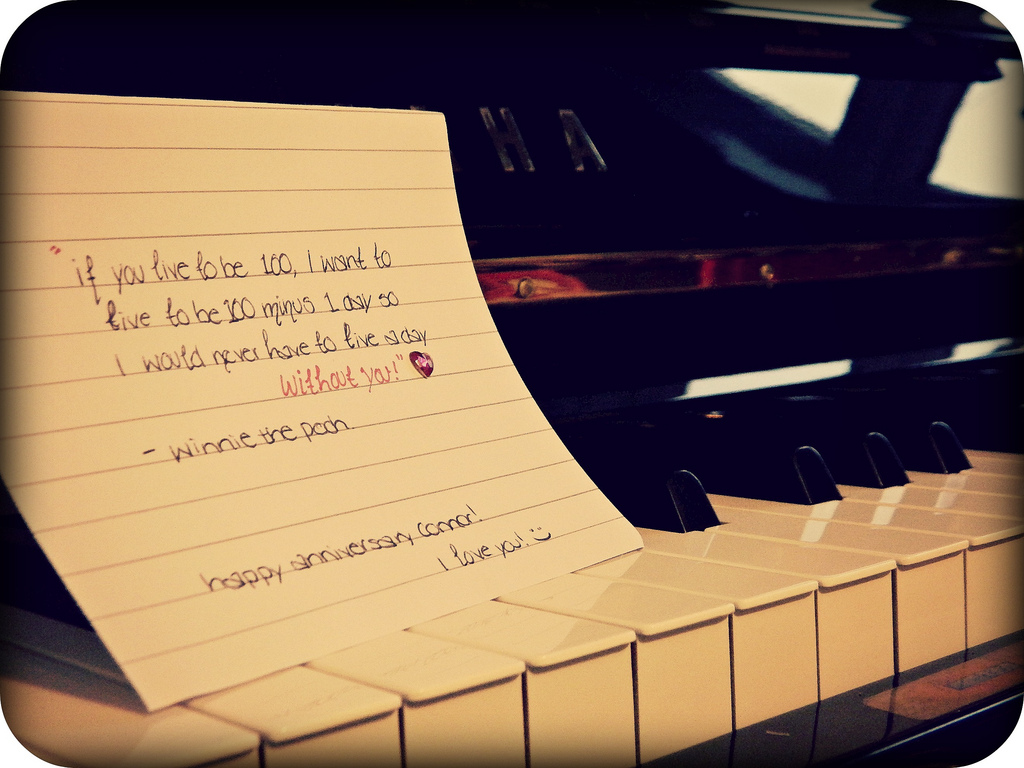 H A
"if you live to be 100, I want to
live to be 100 minus 1 day so
I would never have to live a day
without you!"
- winnie the pooh
happy anniversary Connor!
I love you! :)